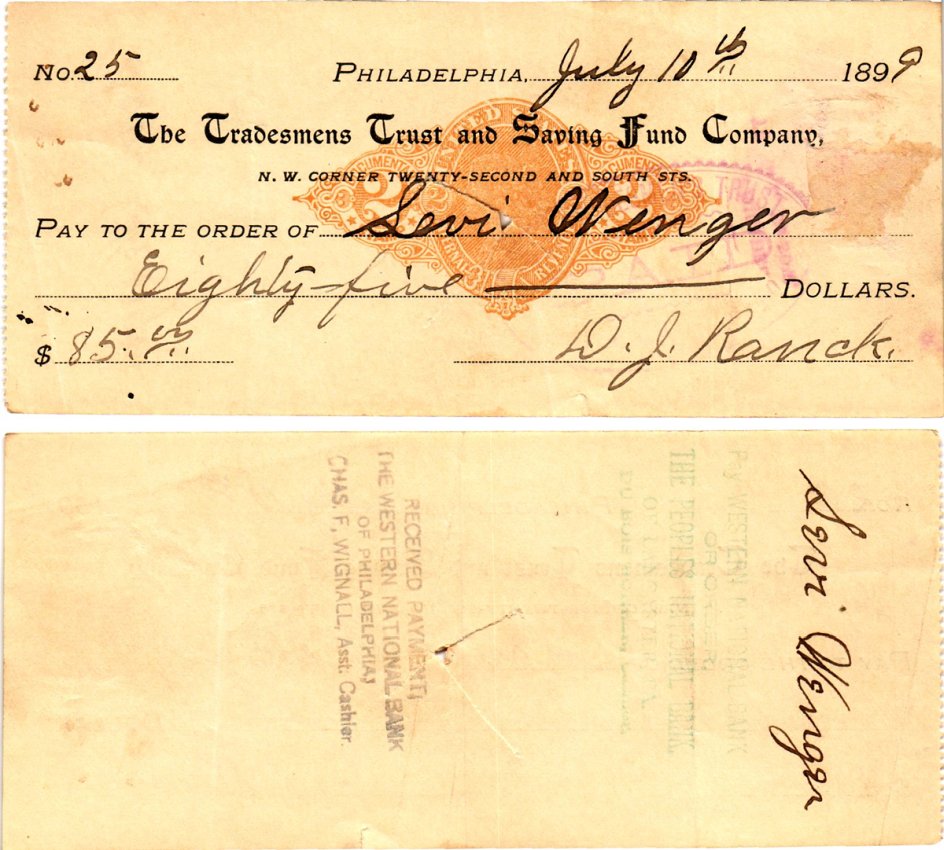 No. 25 PHILADELPHIA, July 10th 1899
The Tradesmens Trust and Saving Fund Company,
N. W. CORNER TWENTY-SECOND AND SOUTH STS.
PAY TO THE ORDER OF Levi Wenger
Eighty-five DOLLARS.
$ 85.00 D. J. Ranck.
UNITED STATES
DOCUMENTARY 2 2 DOCUMENTARY
TRUST
PAID
Levi Wenger
Pay WESTERN NATIONAL BANK
OR ORDER,
THE PEOPLES NATIONAL BANK
RECEIVED PAYMENT
THE WESTERN NATIONAL BANK
OF PHILADELPHIA,
CHAS. F. WIGNALL, Asst. Cashier.